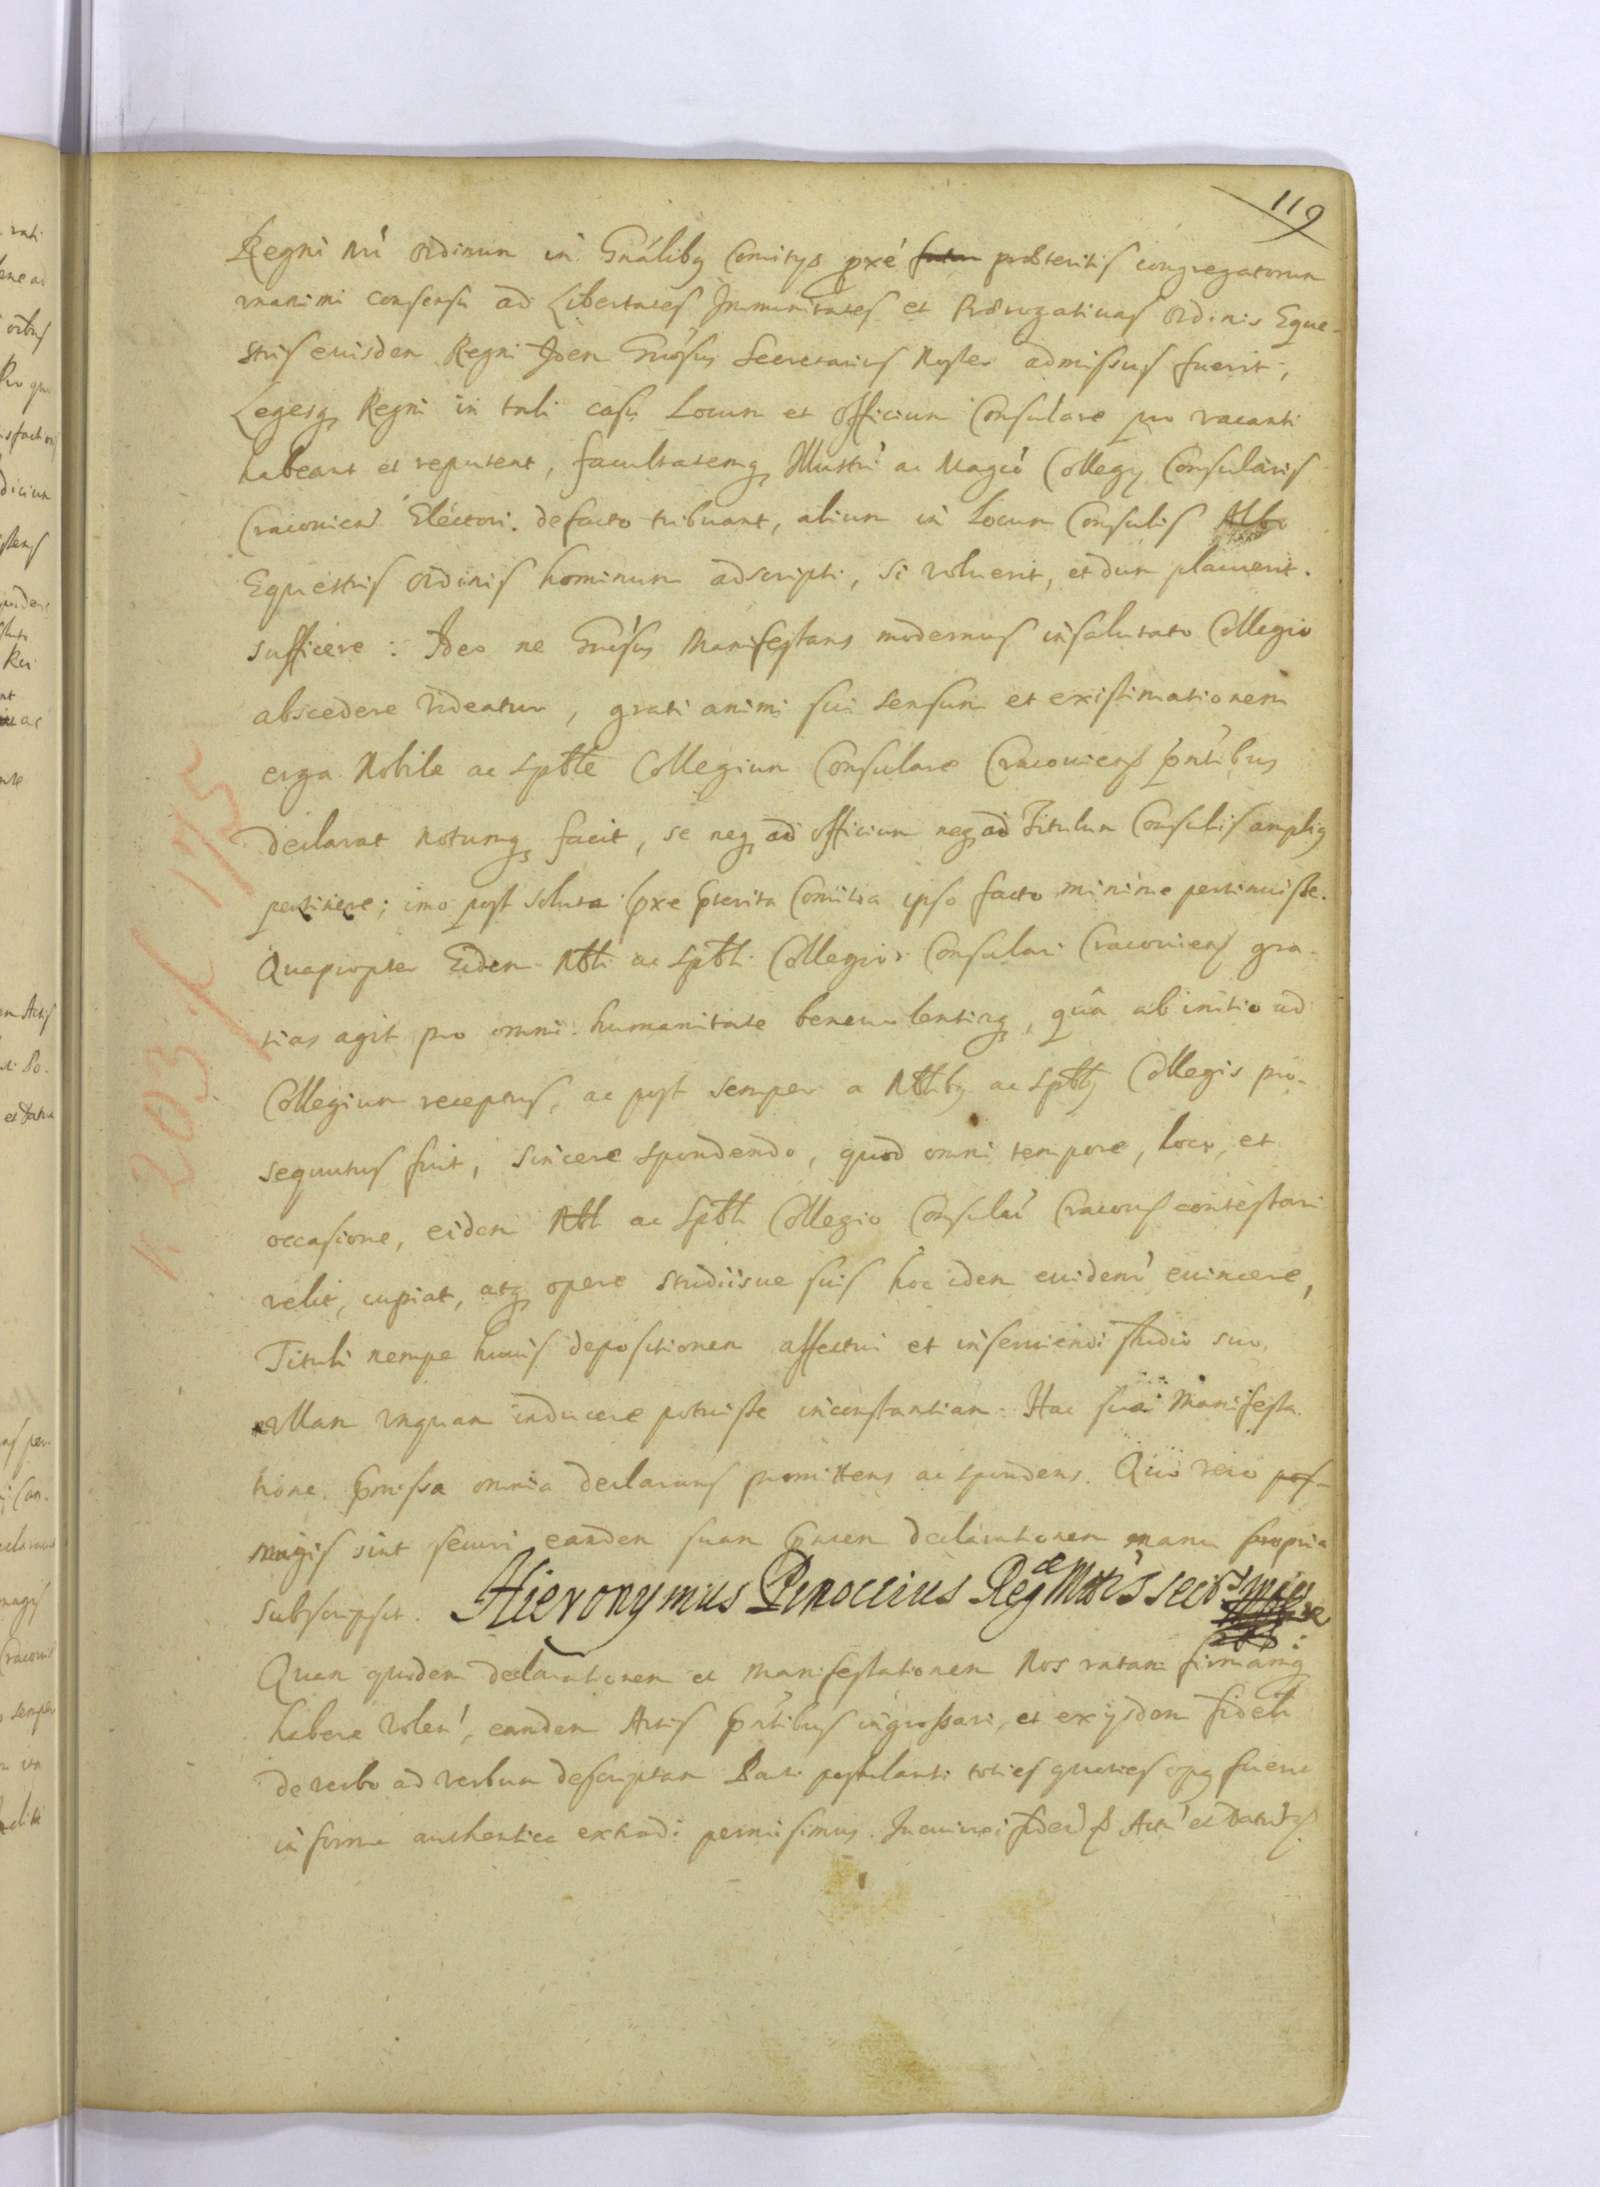 119
Regni Nri Ordinum in Gnálibq Comitijs pxé futur præteritis congregatorum
vnanimi consensu ad Libertates Immunitates et Prærogatiuas Ordinis Eque-
stris euisdem Regni Idem Gnósus Secretarius Noster admissus fuerit,
Legesq Regni in tali casu Locum et Officium Consulare pro vacanti
habeant et reputent, facultatemq Illustri ac Magco Collegij Consularis
Cracovien Electori defacto tribuant, alium in Locum Consulis Albo
Equestris Ordinis hominum adscripti, si voluerit, et dum placuerit
sufficere: Ideo ne Gnósus Manifestans modernus insalutato Collegio
abscedere videatur, grati animi sui sensum et existimationem
erga Nobile ac Spble Collegium Consulare Cracouiens pntibus
declarat notumq facit, se neq ad officium neq ad Titulum Consulis ampliq
pertinere; imo post soluta pxe pterita Comitia ipso facto minime pertinuisse.
Quapropter Eidem Nbli ac Spbli Collegio Consulari Cracouiens gra-
tias agit pro omni humanitate beneuolentiaq, quâ ab initio ad
Collegium receptus, ac post semper a Nblibq ac Spblbq Collegis pro-
sequutus fuit, sincere spondendo, quod omni tempore, loco, et
occasione, eidem Nbli ac Spbli Collegio Consulari Cracous contestari
velit, cupiat, atq opere studiisue suis hoc idem euidenr euincere,
Tituli nempe huius depositionem affectui et inseruiendi studio suo,
vllam vnquam inducere potuisse inconstantiam. Hac sua Manifesta
tione pmissa omnia declarans promittens ac spondens. Quo vero pos-
magis sint securi eandem suam pntem declarationem manu propria
subscripsit. Hieronymus Pinoccius Regæ Mtis secr
Quam quidem declarationem et manifestationem Nos ratam firmamq
habere volen, eandem Actis pntibus ingrossari, et ex ijsdem fideli
de verbo ad verbum descriptam Parti postulanti toties quoties opq fuerit
in forma authentica extradi permisimus. In cuius rei fidem Act et Datum
K 203 f 175